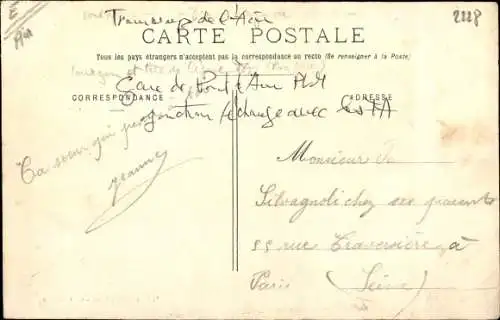 2228
Tramways de l'Ain
CARTE POSTALE
Tous les pays étrangers n'acceptent pas la correspondance au recto (Se renseigner à la Poste)
Gare de Pont d'Ain PLM
CORRESPONDANCE
ADRESSE
jonction/échange avec
Ta sœur qui
Jeanne
Monsieur
Silvagnoli chez ses parents
55 rue Traversière à
Paris (Seine)